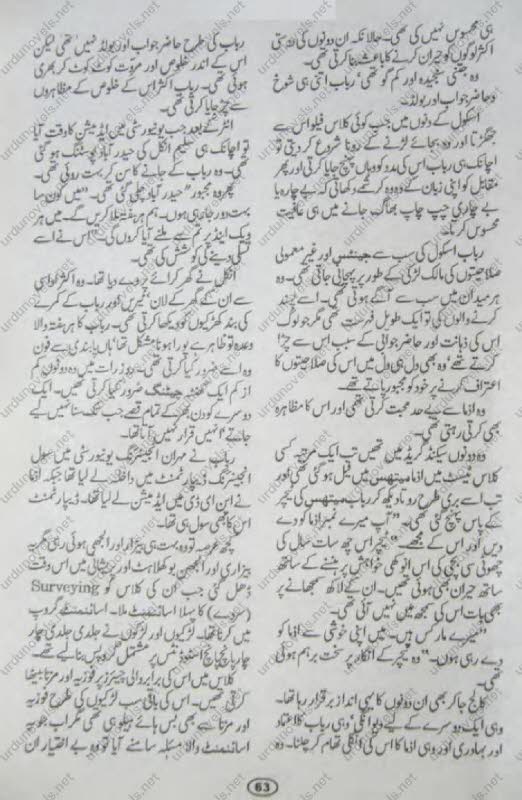 ہی محسوس نہیں کی تھی۔ حالانکہ ان دونوں کی دوستی
اکثر لوگوں کو حیران کرنے کا باعث بنا کرتی تھی۔
وہ جتنی سنجیدہ اور کم گو تھی، رباب اتنی ہی شوخ
و حاضر جواب اور بولڈ۔
اسکول کے دنوں میں جب کوئی کلاس فیلو اس سے
جھگڑتا اور وہ بجائے لڑنے کے رونا شروع کر دیتی تو
اچانک ہی رباب اس کی مدد کو وہاں پہنچ جایا کرتی اور پھر
مقابل کو اپنی زبان کے وہ وہ کرشمے دکھاتی کہ بے چارہ یا
بے چاری چپ چاپ بھاگ جانے میں ہی عافیت
محسوس کرتا۔
رباب اسکول کی سب سے جینئس اور غیر معمولی
صلاحیتوں کی مالک لڑکی کے طور پر پہچانی جاتی تھی۔ وہ
ہر میدان میں سب سے آگے ہوتی تھی۔ اسے پسند
کرنے والوں کی تو ایک طویل فہرست تھی مگر جو لوگ
اس کی ذہانت اور حاضر جوابی کے سبب اس سے چڑا
کرتے تھے، وہ بھی دل ہی دل میں اس کی صلاحیتوں کا
اعتراف کرنے پر خود کو مجبور پاتے تھے۔
وہ اذفا سے بے حد محبت کرتی تھی اور اس کا مظاہرہ
بھی کرتی رہتی تھی۔
وہ دونوں سیکنڈ گریڈ میں تھیں تب ایک مرتبہ کسی
کلاس ٹیسٹ میں اذفا میتھس میں فیل ہو گئی تھی اور
تب اسے بری طرح روتا دیکھ کر رباب میتھس کی ٹیچر
کے پاس پہنچ گئی تھی۔ "آپ میرے نمبر اذفا کو دے
دیں اور اس کے مجھے۔" ٹیچر اس چھ سات سال کی
چھوٹی سی بچی کی اس انوکھی خواہش پر ہنسنے کے ساتھ
ساتھ حیران بھی ہوئی تھیں۔ ان کے لاکھ سمجھانے پر
بھی بات اس کی سمجھ میں نہیں آئی تھی۔
"میرے مارکس ہیں۔ میں اپنی خوشی سے اذفا کو
دے رہی ہوں۔" وہ ٹیچر کے انکار پر سخت برہم ہوئی
تھی۔
کالج جا کر بھی ان دونوں کا یہی انداز برقرار رہا تھا۔
وہی ایک دوسرے کے لیے دیوانگی، وہی رباب کا اعتماد
اور بہادری اور وہی اذفا کا اس کی انگلی تھام کر چلنا۔ وہ
رباب کی طرح حاضر جواب اور بولڈ نہیں تھی لیکن
اس کے اندر خلوص اور مروت کوٹ کوٹ کر بھری
ہوئی تھی۔ رباب اکثر اس کے خلوص کے مظاہروں
سے چڑ جایا کرتی تھی۔
انٹر کے بعد جب یونیورسٹی میں ایڈمیشن کا وقت آیا
تو اچانک ہی سلیم انکل کی حیدر آباد پوسٹنگ ہو گئی
تھی۔ وہ رباب کے جانے کا سن کر بہت روئی تھی۔
پھر وہ مجبور" حیدر آباد چلی گئی تھی۔ "میں کون سا
بہت دور جا رہی ہوں۔ ہم ہر ہفتہ ملا کریں گے۔ میں ہر
ویک اینڈ پر تم سے ملنے آیا کروں گی۔" اس نے اسے
تسلی دینے کی کوشش کی تھی۔
انکل نے گھر کرائے پر دے دیا تھا۔ وہ اکثر اداسی
سے ان کے گھر کے لان، ٹیرس اور رباب کے کمرے
کی بند کھڑکیوں کو دیکھا کرتی تھی۔ رباب کا ہر ہفتہ والا
وعدہ تو ظاہر ہے پورا ہونا مشکل تھا، ہاں پابندی سے فون
وہ اسے ضرور کیا کرتی تھی۔ روز رات میں وہ دونوں کم
از کم ایک گھنٹہ چیٹنگ ضرور کیا کرتی تھیں۔ ایک
دوسرے کو دن بھر کے تمام قصے جب تک سنا نہیں لیے
جاتے، انہیں قرار نہیں آتا تھا۔
رباب نے مہران انجینئرنگ یونیورسٹی میں سول
انجینئرنگ ڈیپارٹمنٹ میں داخلہ لے لیا تھا جبکہ اذفا
نے این ای ڈی میں ایڈمیشن لے لیا تھا۔ ڈیپارٹمنٹ
اس کا بھی سول ہی تھا۔
کچھ عرصہ تو وہ بہت ہی بیزار اور الجھی ہوئی رہی مگر یہ
بیزاری اور الجھن بوکھلاہٹ اور پریشانی میں اس وقت
ڈھل گئی جب ان کی کلاس کو Surveying
(سروے) کا پہلا اسائنمنٹ ملا۔ اسائنمنٹ گروپ
میں کرنا تھا۔ لڑکیوں اور لڑکوں نے جلدی جلدی چار
چار پانچ پانچ اسٹوڈنٹس پر مشتمل گروپس بنا لیے تھے۔
کلاس میں اس کی برابر والی چیئرز پر فوزیہ اور مزنا بیٹھا
کرتی تھیں۔ اس کی باقی سب لڑکیوں کی طرح فوزیہ
اور مزنا سے بھی بس ہائے ہیلو ہی تھی مگر اب جو یہ
اسائنمنٹ والا مسئلہ سامنے آیا تو وہ بے اختیار ان
63
urdunovels.net